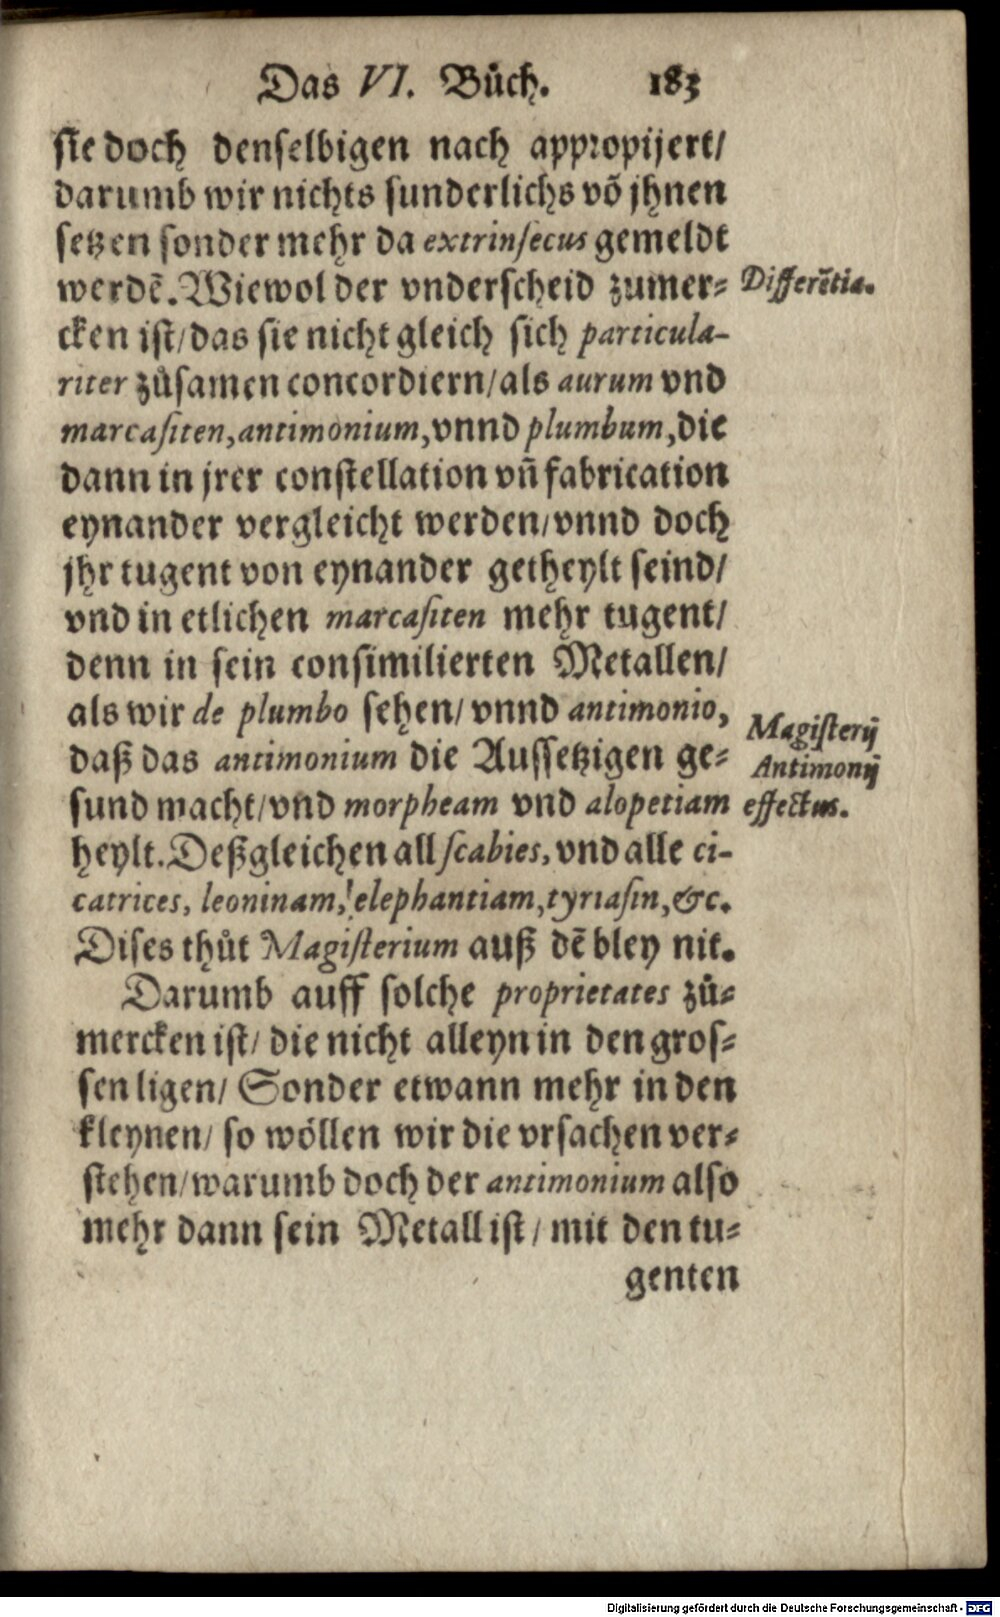 Das VI. Bůch. 183
sie doch denselbigen nach appropijert/
darumb wir nichts sunderlichs võ jhnen
setzen sonder mehr da extrinsecus gemeldt
werdẽ. Wiewol der vnderscheid zumer⸗
Differẽtia.
cken ist/ das sie nicht gleich sich particula-
riter zůsamen concordiern/ als aurum vnd
marcasiten, antimonium, vnnd plumbum, die
dann in jrer constellation vñ fabrication
eynander vergleicht werden/ vnnd doch
jhr tugent von eynander getheylt seind/
vnd in etlichen marcasiten mehr tugent/
denn in sein consimilierten Metallen/
als wir de plumbo sehen/ vnnd antimonio,
daß das antimonium die Aussetzigen ge⸗
sund macht/ vnd morpheam vnd alopetiam
Magisterij
Antimonij
effectus.
heylt. Deßgleichen all scabies, vnd alle ci-
catrices, leoninam, elephantiam, tyriasin, &c.
Dises thůt Magisterium auß dẽ bley nit.
Darumb auff solche proprietates zů⸗
mercken ist/ die nicht alleyn in den gros⸗
sen ligen/ Sonder etwann mehr in den
kleynen/ so wöllen wir die vrsachen ver⸗
stehen/ warumb doch der antimonium also
mehr dann sein Metall ist/ mit den tu⸗
genten
Digitalisierung gefördert durch die Deutsche Forschungsgemeinschaft - DFG